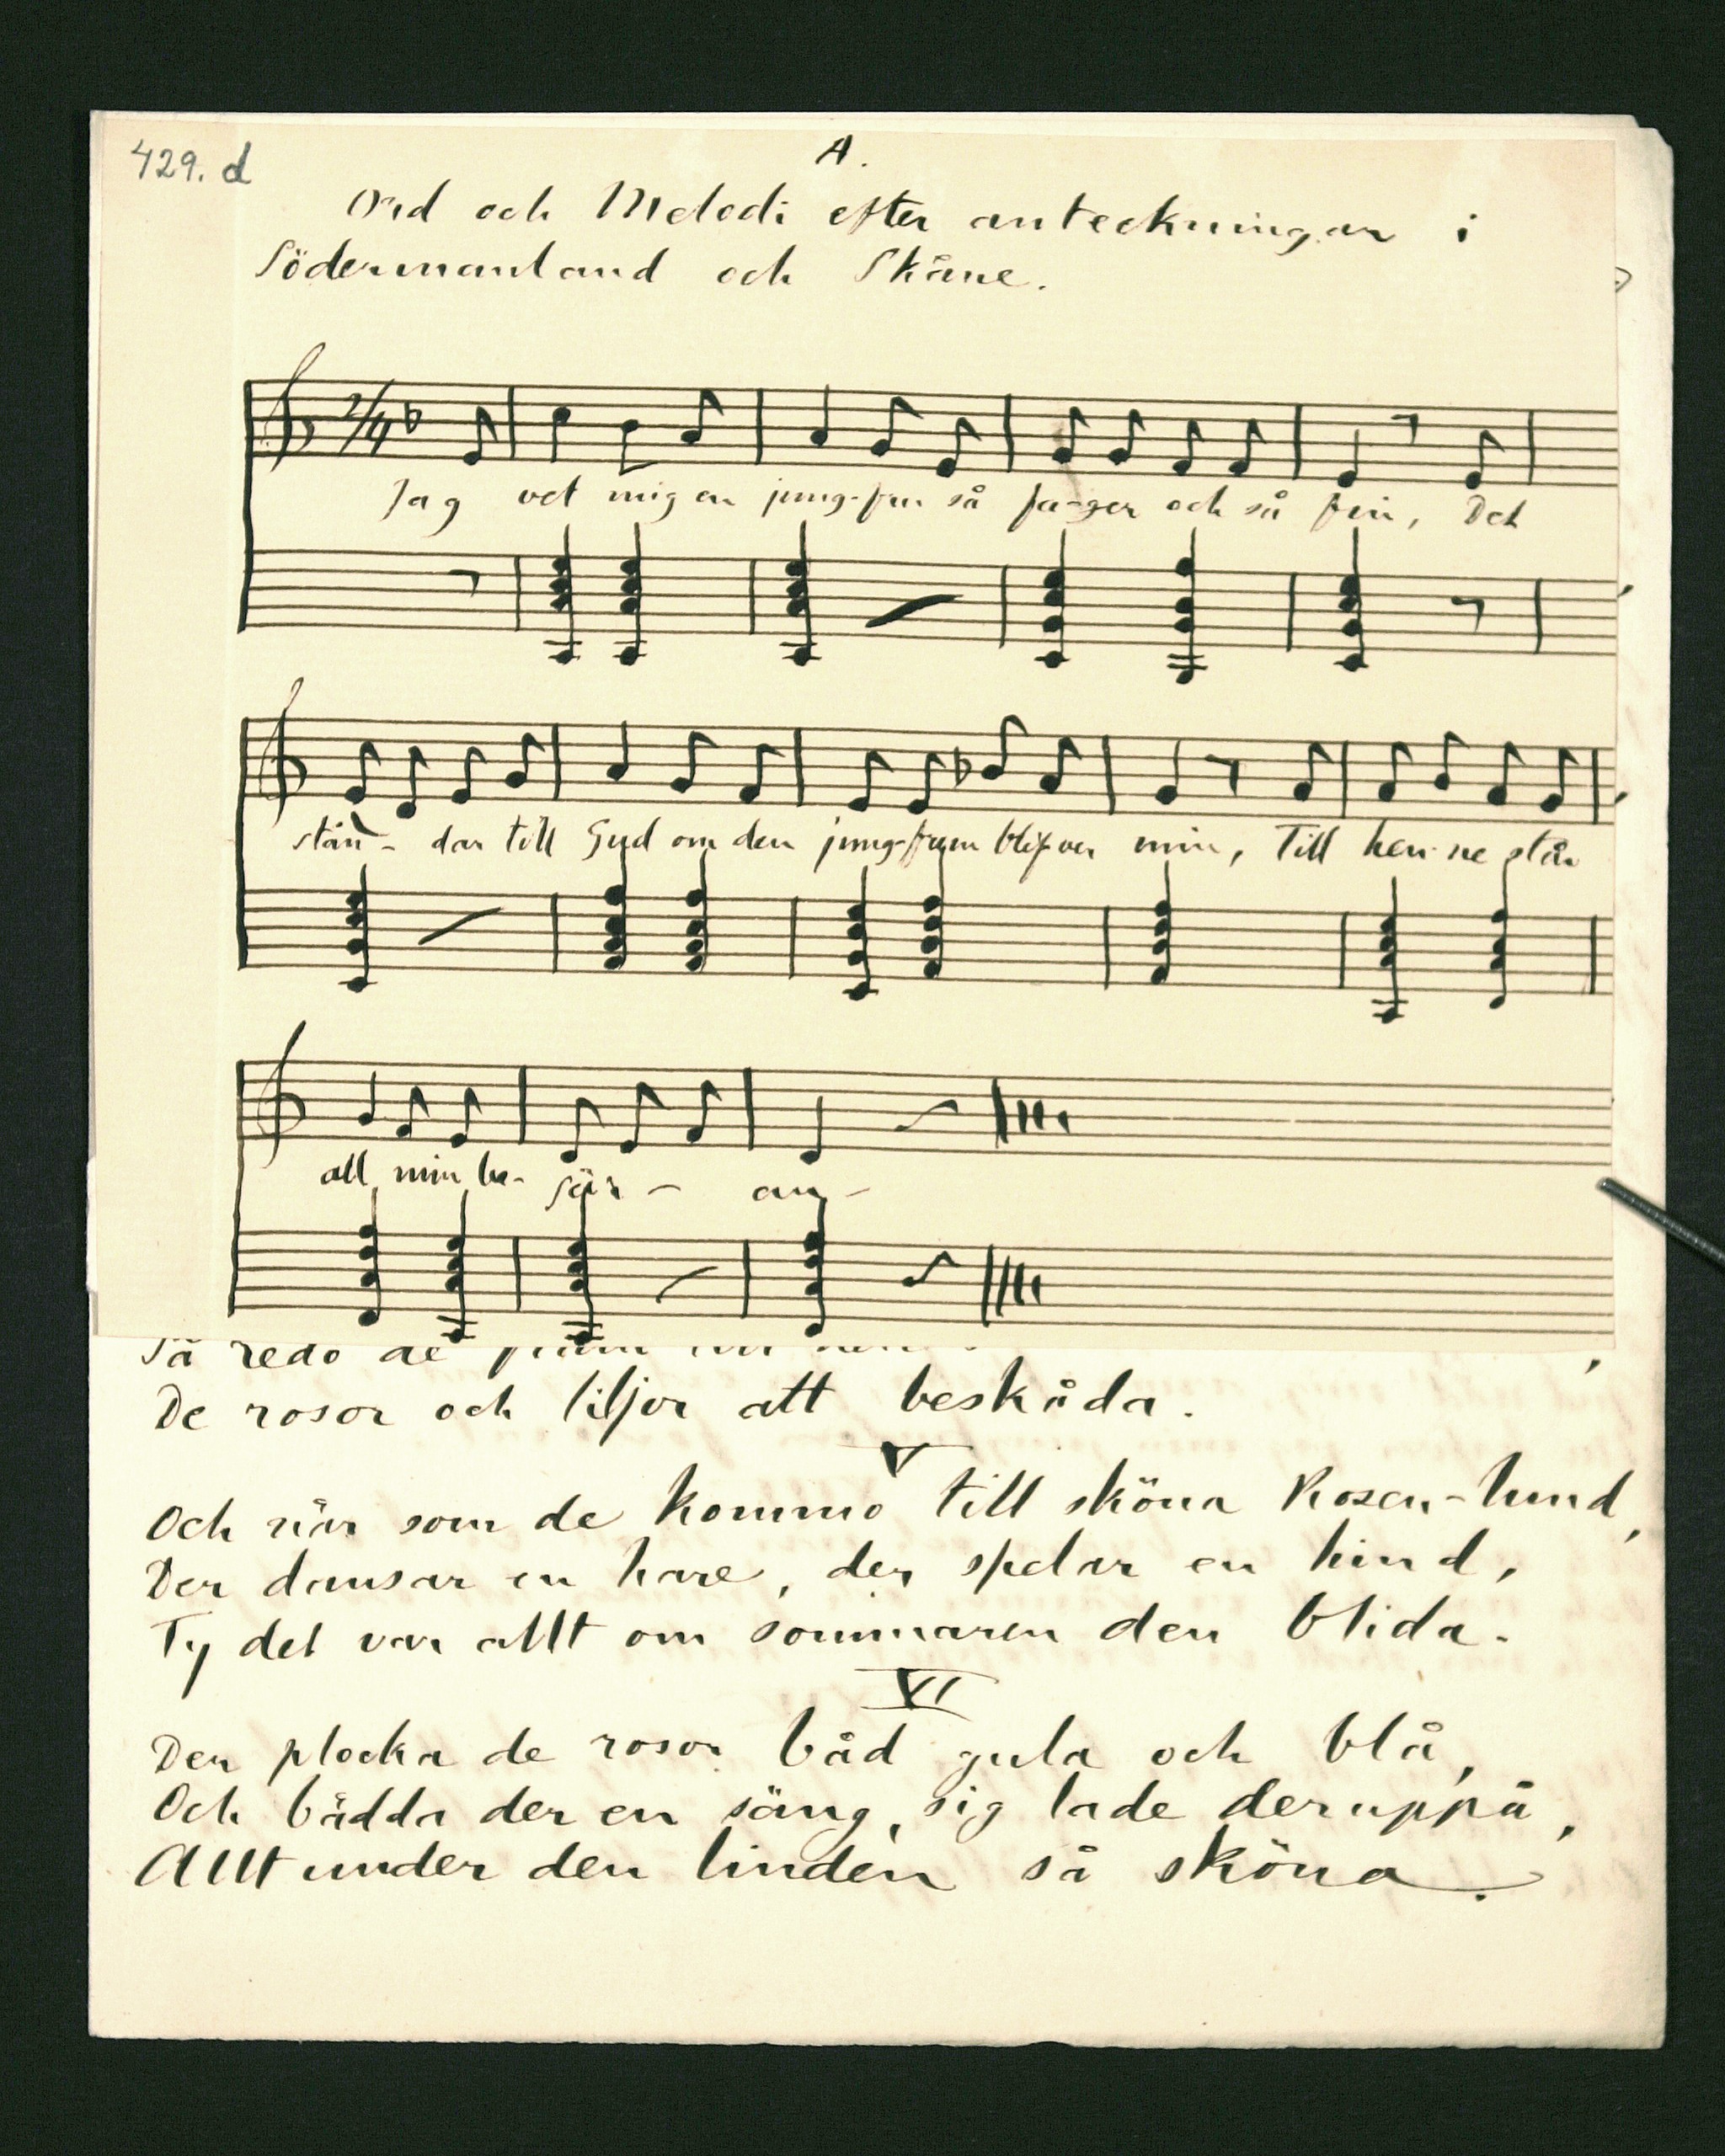 429. d
A.
Ord och Melodi efter anteckningar i
Södermanland och Skåne.
2/4
Jag vet mig en jung-fru så fa-ger och så fin, Det
stån- dar till Gud om den jung-frun blif-ver min, Till hen-ne står
all min be- gär- an-
Så redo de
De rosor och liljor att beskåda.
V
Och när som de kommo till sköna Rosen-lund,
Der dansar en hare, der spelar en hind,
Ty det var allt om sommaren den blida.
VI
Der plocka de rosor båd gula och blå,
Och bädda der en säng, sig lade deruppå,
Allt under den linden så sköna.